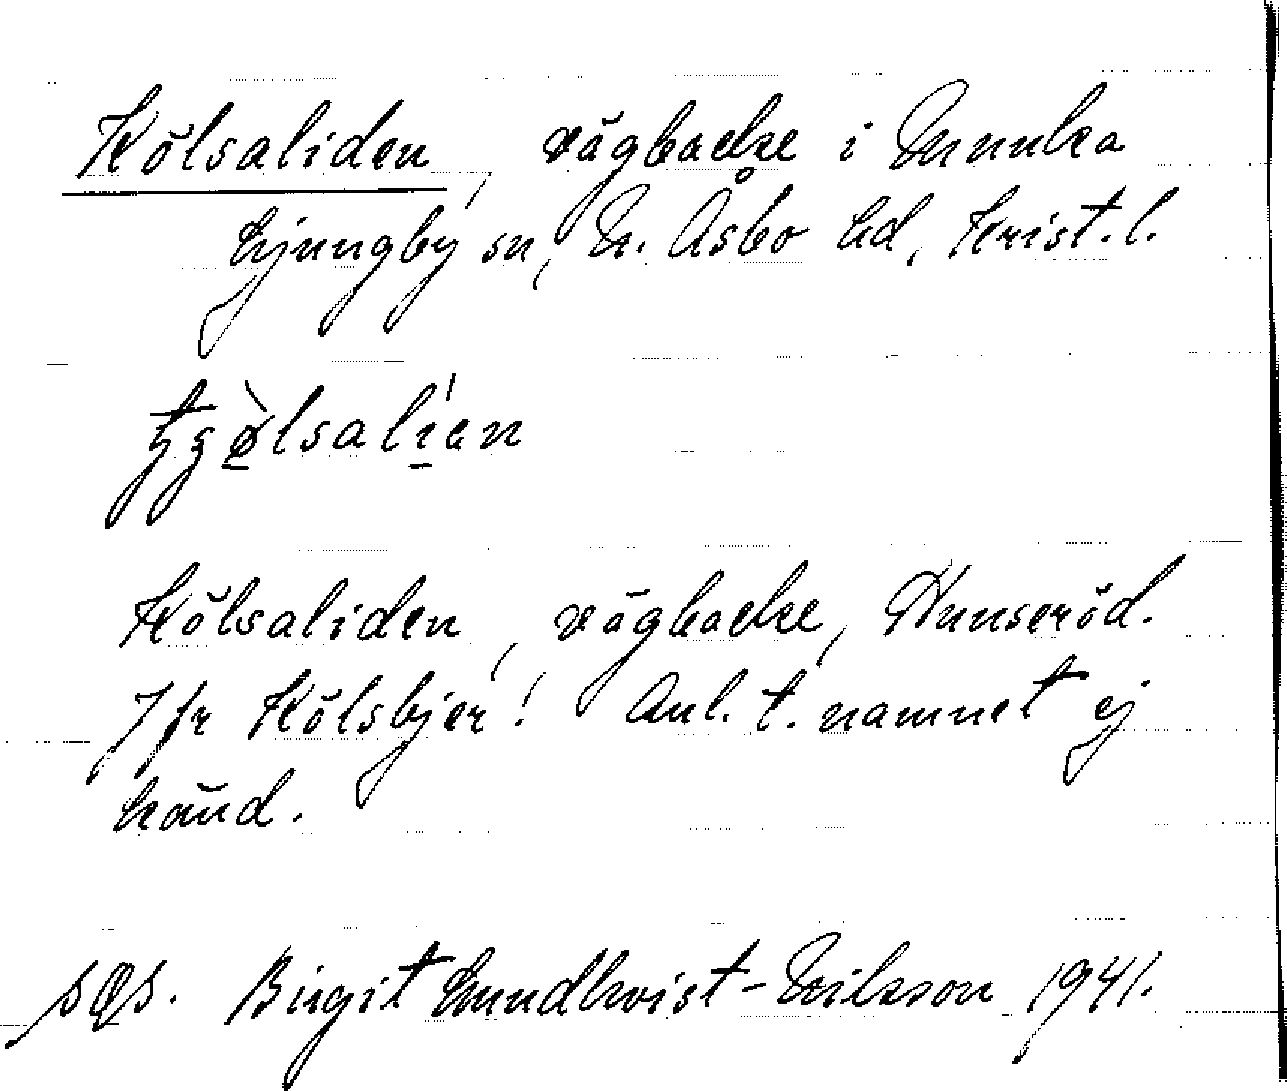 Kölsaliden, vägbacke i Munka
Ljungby sn, N. Åsbo hd, Krist. l.
Kölsaliden, vägbacke, Hunseröd.
Jfr Kölsbjer! Anl. t. namnet ej
känd.
Birgit Lundkvist-Nilsson 1941.